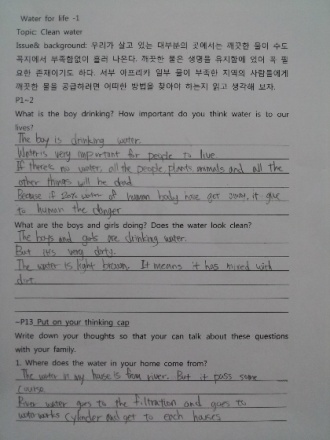 Water for life -1
Topic: Clean water
Issue& background: 우리가 살고 있는 대부분의 곳에서는 깨끗한 물이 수도
꼭지에서 부족함없이 흘러 나온다. 깨끗한 물은 생명을 유지함에 있어 꼭 필
요한 존재이기도 하다. 서부 아프리카 일부 물이 부족한 지역의 사람들에게
깨끗한 물을 공급하려면 어떠한 방법을 찾아야 하는지 읽고 생각해 보자.
P1~2
What is the boy drinking? How important do you think water is to our
lives?
The boy is drinking water.
Water is very important for people to live.
If there's no water, all the people plants animals and all the
other things will be dead.
Because if water of human body have get away, it give
to human the danger.
What are the boys and girls doing? Does the water look clean?
The boys and girls are drinking water.
But it's very dirty.
The water is light brown. It means it has mixed with
dirt.
~P13 Put on your thinking cap
Write down your thoughts so that your can talk about these questions
with your family.
1. Where does the water in your home come from?
The water in my house is from river. But it pass some
course.
River water goes to the filtration and goes to
waterworks cylinder and get to each houses